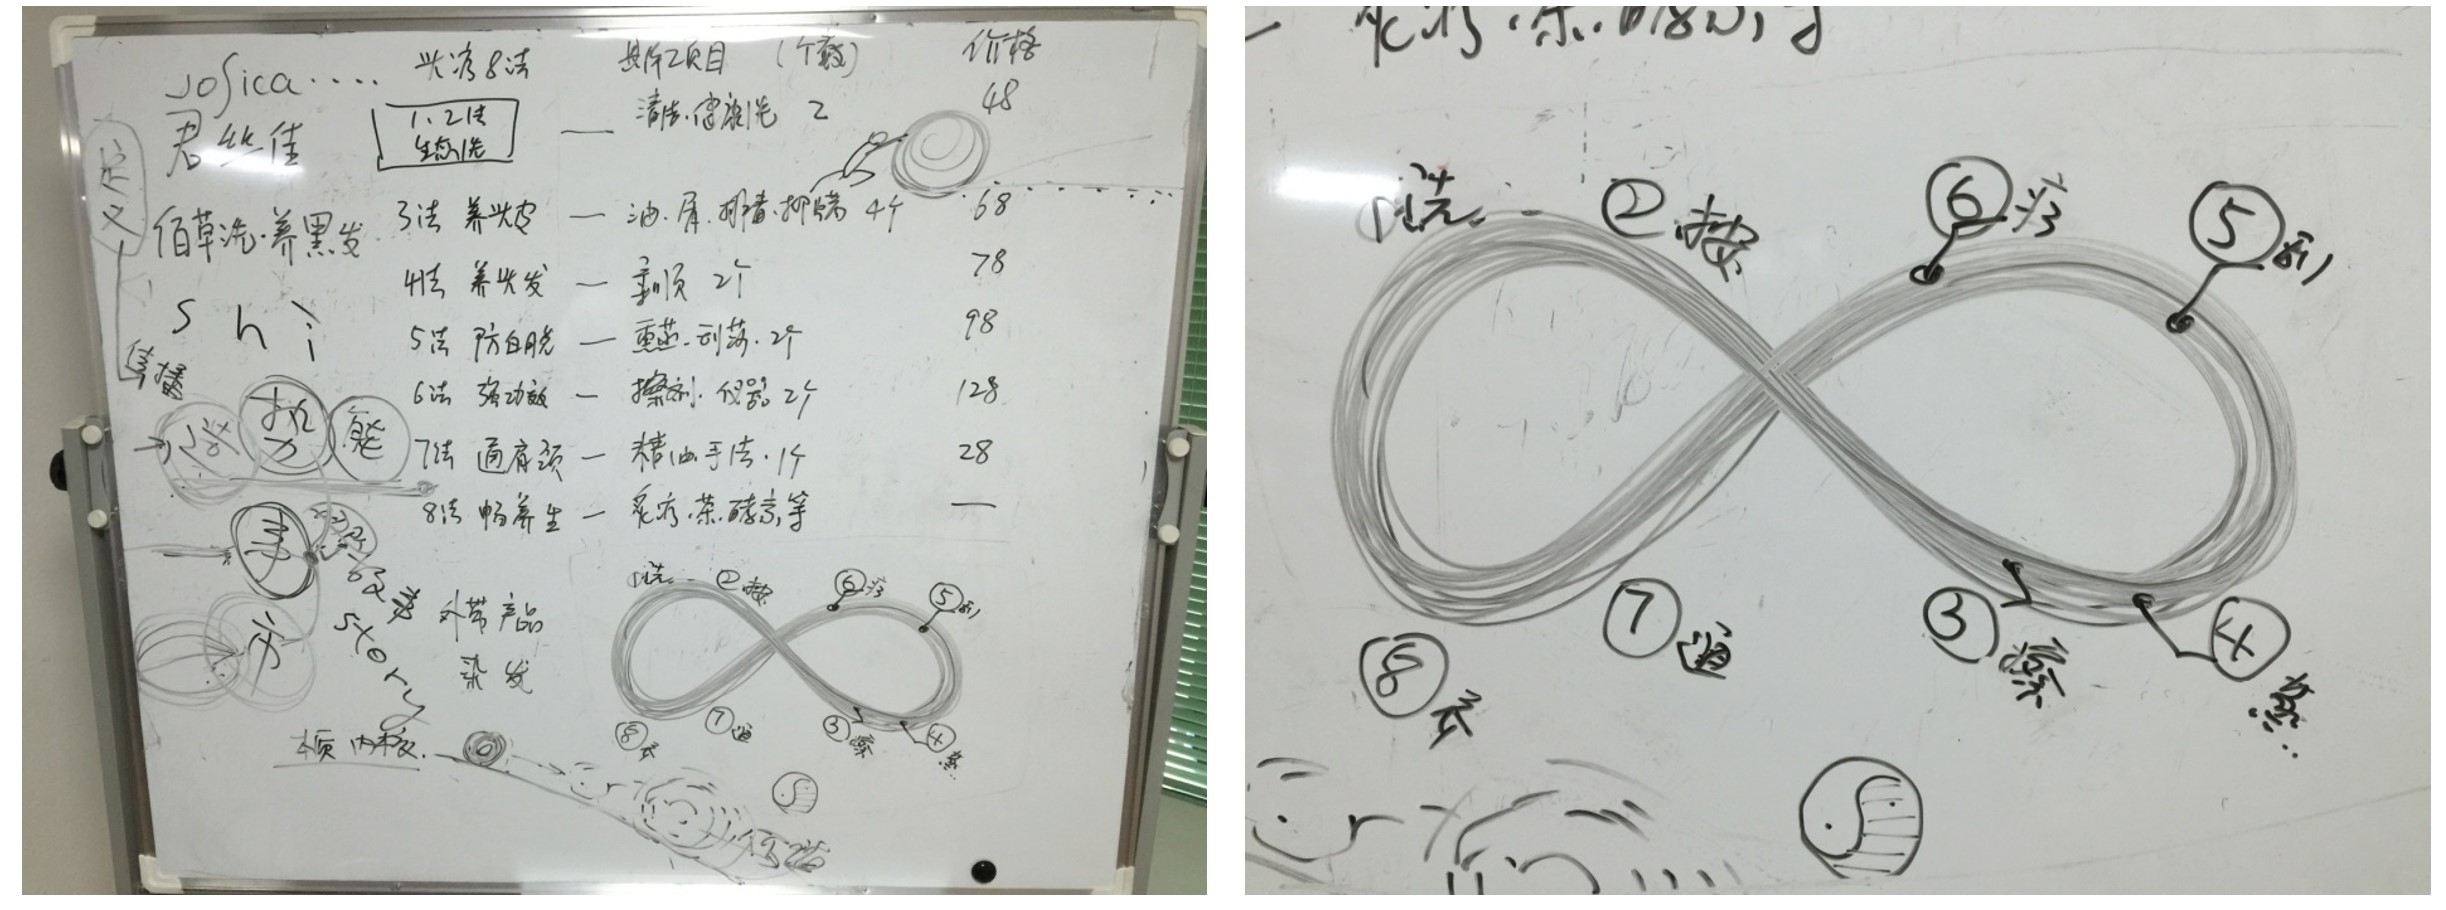 Josica....
君丝佳
佰草洗·养黑发
shi
定义
传播
执力
能
story
头疗8法 具体项目 (个数) 价格
1、2法 生态洗 — 清洁·健康洗 2 48
3法 养头皮 — 油·屑· 4个 68
4法 养头发 — 柔顺 2个 78
5法 防白脱 — 熏蒸·刮痧·2个 98
6法 强功效 — 擦剂·仪器 2个 128
7法 通肩颈 — 精油手法·1个 28
8法 畅养生 — 炙疗·茶·酵素等 —
外带产品
染发
本质内核
①洗 ②按 ⑥疗 ⑤刮
⑧养 ⑦通 ③擦 ④蒸
炙疗·茶·酵素等
①洗 ②按 ⑥疗 ⑤刮
⑦通 ③擦 ④蒸
⑧养